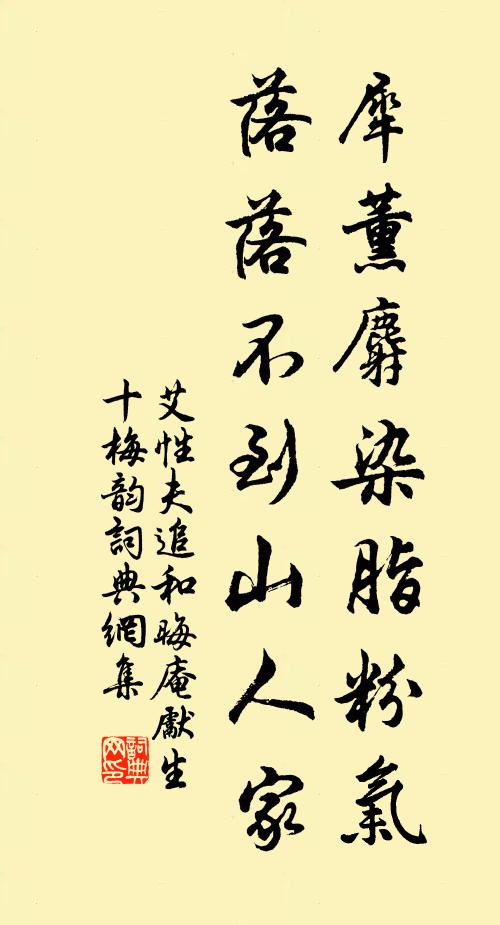 犀薰麝染脂粉氣
落落不到山人家
艾性夫追和晦庵獻生
十梅韵詞典網集
詞典
网印